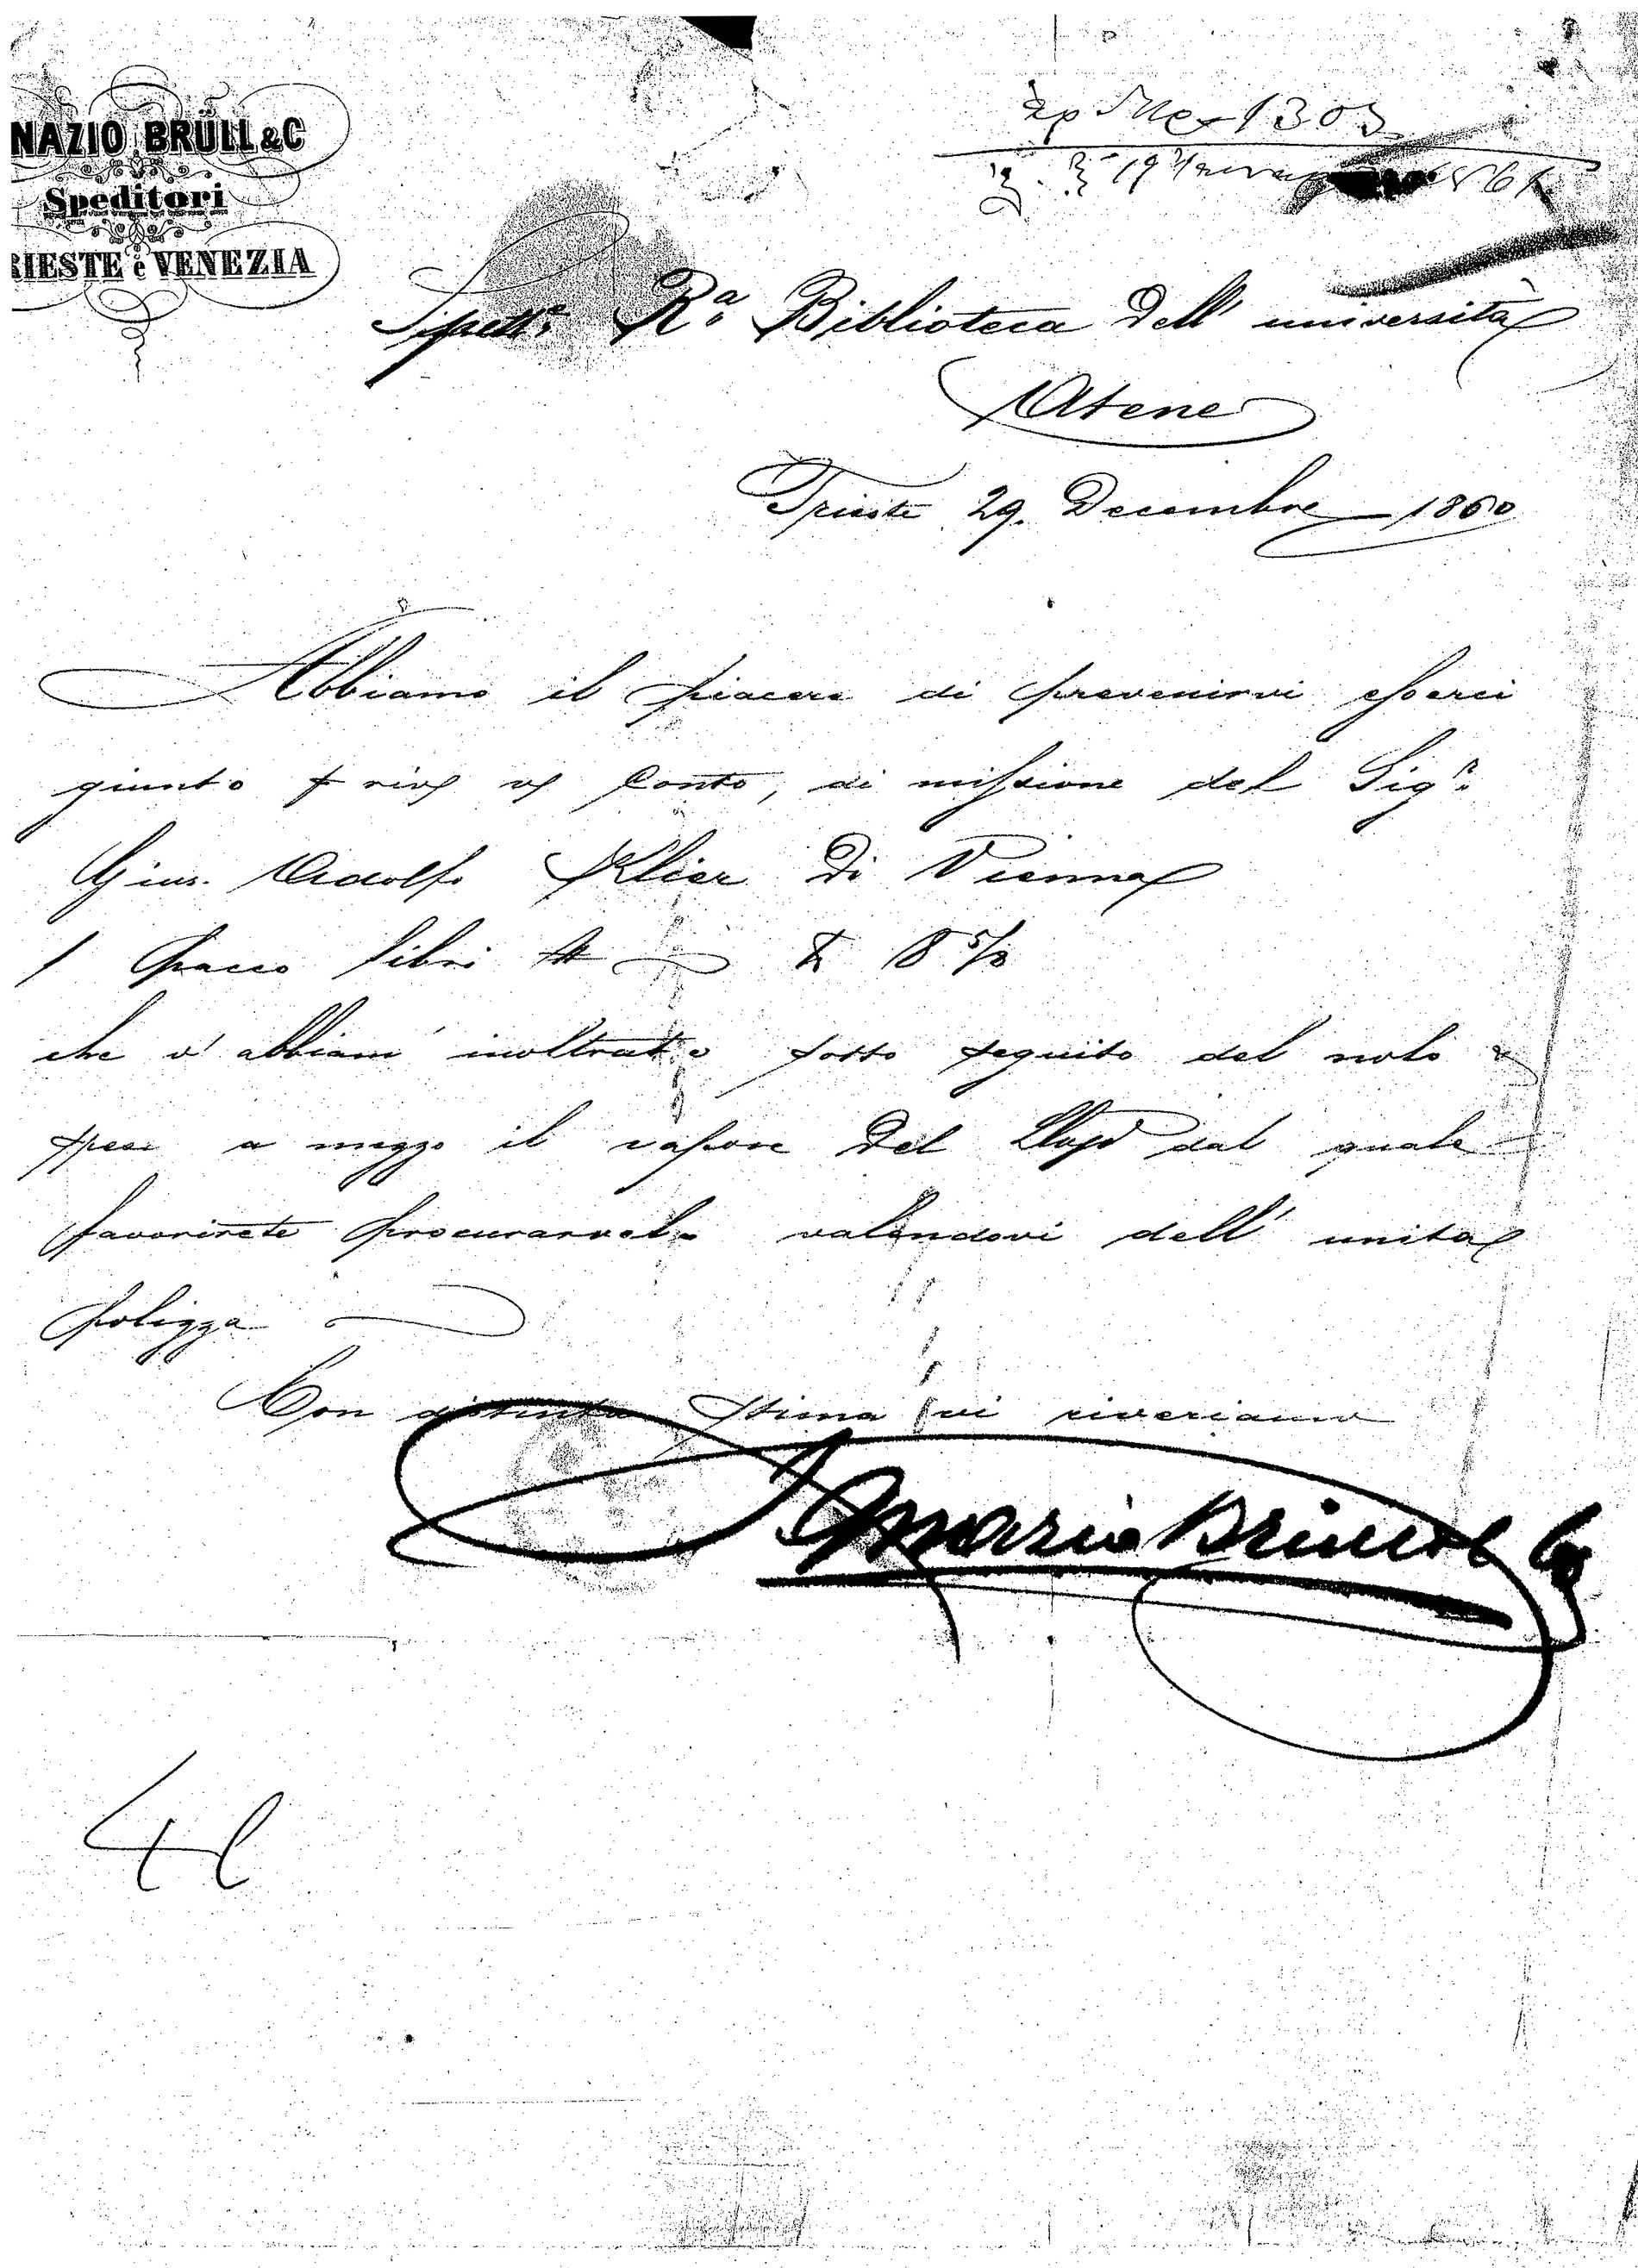 NAZIO BRÜLL & C
Speditori
RIESTE e VENEZIA
1303
19 1861
Spett. Rª Biblioteca dell' università
Atene
Trieste 29. Decembre 1860
Abbiamo il piacere di prevenirvi esserci
giunto Conto, di missione del Sigr.
Gius. Adolfo Klier di Vienna
1 Pacco libri 8 5/8
che v' abbiam' inoltrato sotto seguito del nolo e
spese a mezzo il vapore del Lloyd dal quale
favorirete procurarvelo valendovi dell' unita
polizza
Con distinta stima vi riveriamo